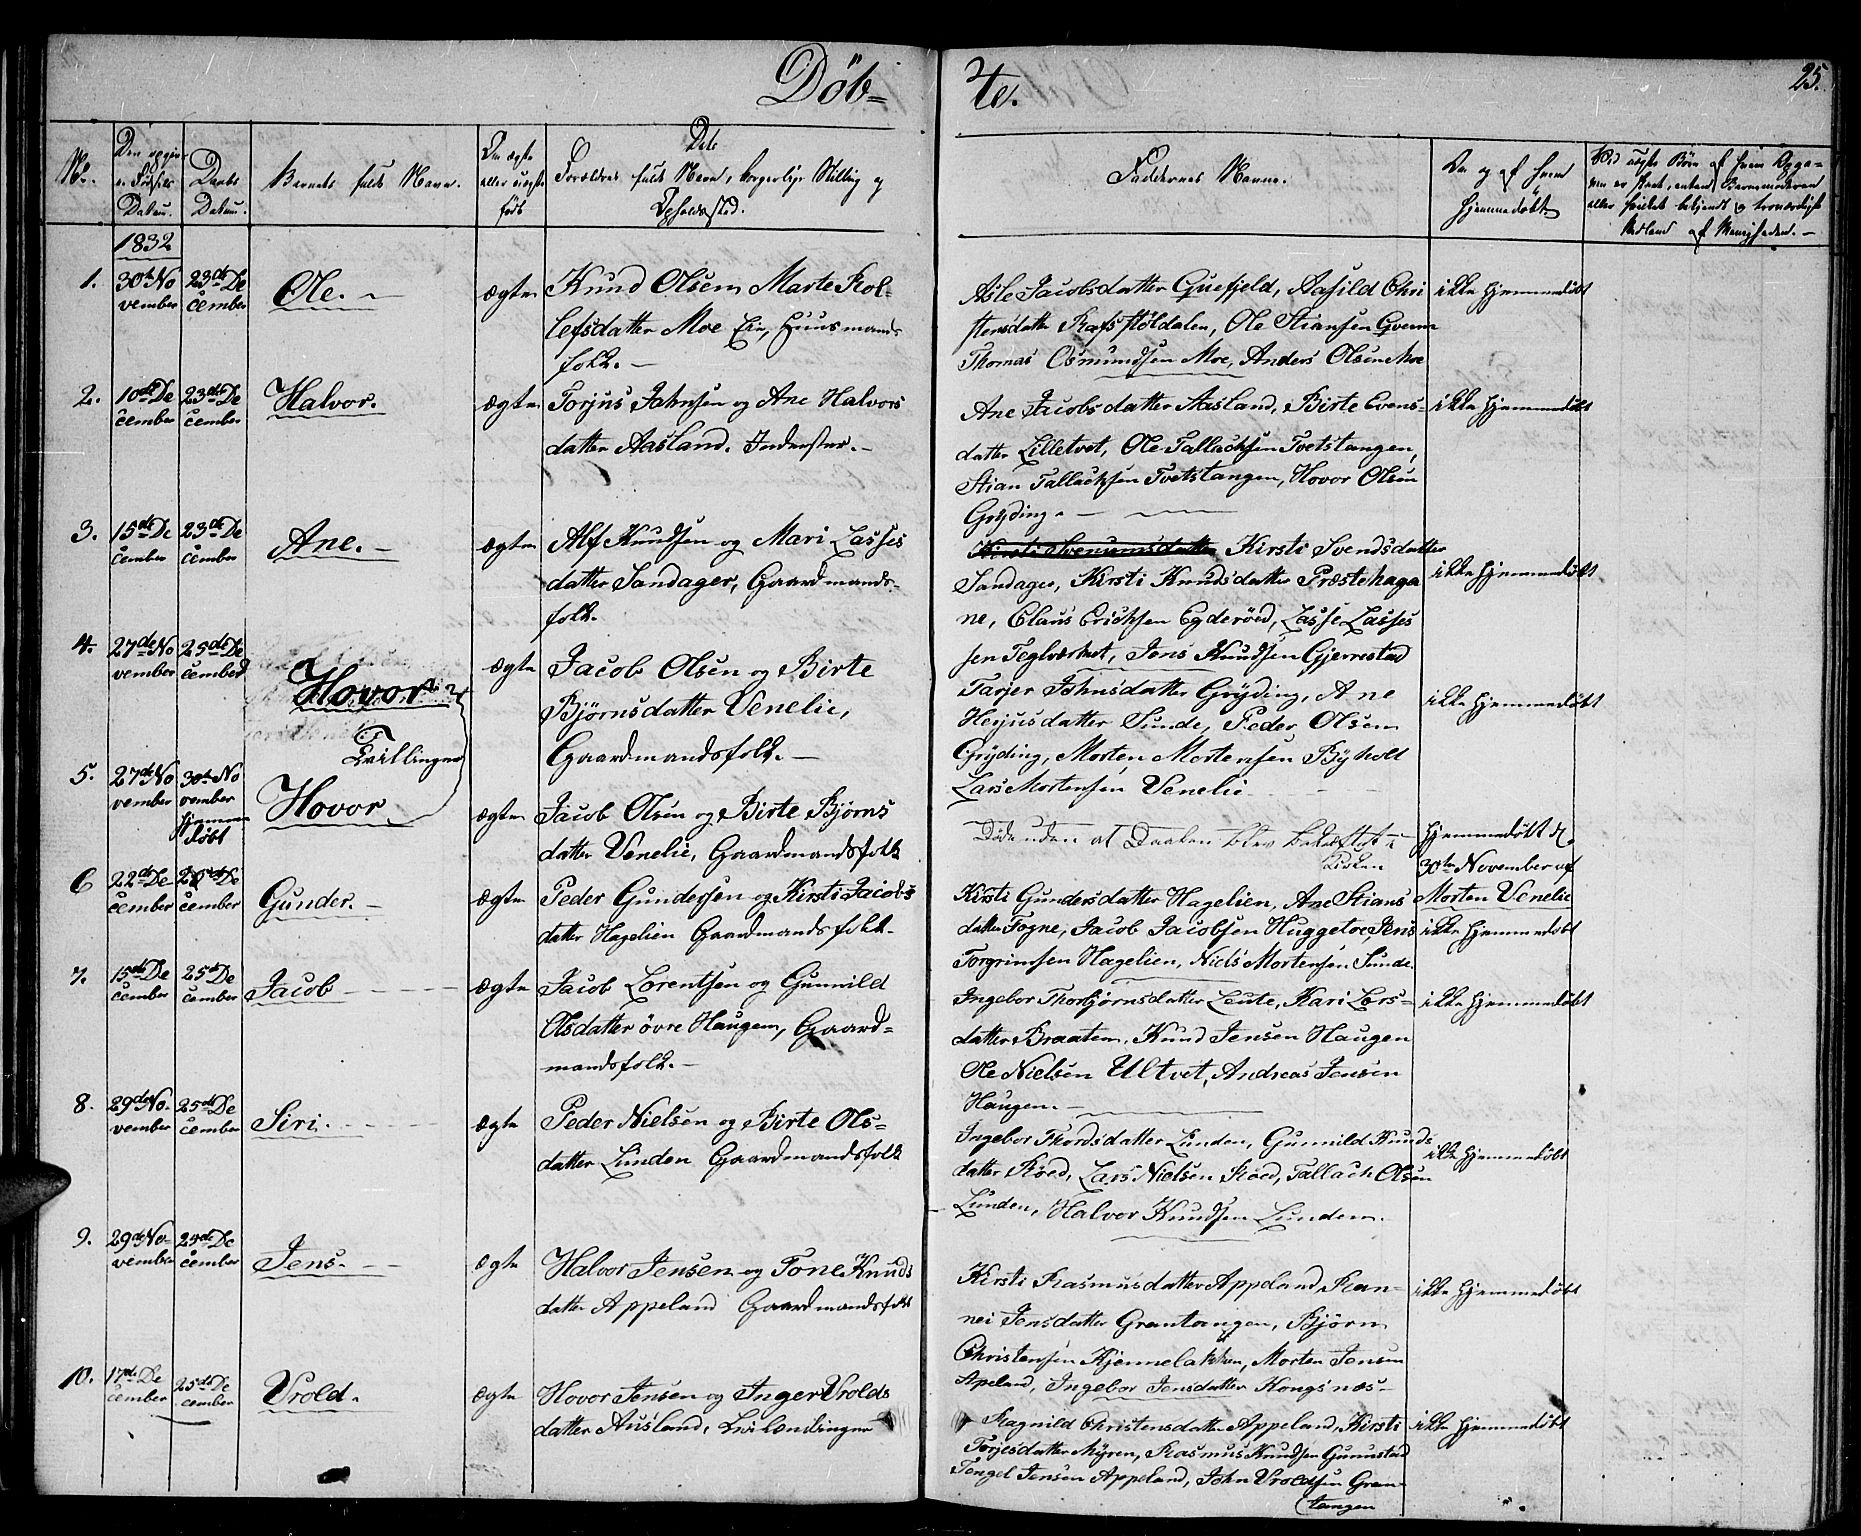 Döb=
te.
25.
No.
Den opgivne Fødsels Datum.
Daabs Datum.
Barnets fulde Navn.
Om ægte eller uægte født
Dets Forældres fulde Navn, borgerlige Stilling og Opholdssted.
Faddernes Navne.
Om og af hvem hjemmedøbt
Ved uægte Børn af hvem Opga-
1832
1. 30te No
vember
23de De
cember
Ole.
ægte
Knud Olsen Marte Rol-
lefsdatter Moe Eie, Huusmands
folk.
Asle Jacobsdatter Guefjeld, Aasild Chri
stensdatter Ræfstöldalen, Ole Stiansen
Thomas Osmundsen Moe, Anders Olsen Moe
ikke hjemmedøbt
2. 10de De
cember
23de De
cember
Halvor.
ægte
Torjus Johnsen og Ane Halvors
datter Aasland. Inderster.
Ane Jacobsdatter Aasland, Birte Evens-
datter Lilletvet, Ole Tallacksen Tvetstangen,
Stian Tallacksen Tvetstangen, Hovor Olsen
Gryding.
ikke hjemmedøbt
3. 15de De
cember
23de De
cember
Ane.
ægte
Alf Knudsen og Mari Lasses
datter Sandager, Gaardmands-
folk.
Kirsti Svendsdatter
Sandager, Kirsti Knudsdatter Præstehaga
ne, Claus Erichsen Egderöed, Lasse Lasses
sen Teglværket, Jens Knudsen Gjerrestad
ikke hjemmedøbt
4. 27de No
vember
25de De
cember
Hovor
Tvillinger
ægte
Jacob Olsen og Birte
Björnsdatter Venelie,
Gaardmandsfolk.
Tarjer Johnsdatter Gryding, Ane
Herjusdatter Sunde, Peder Olsen
Gryding, Morten Mortensen Byholt
Lars Mortensen Venelie
ikke hjemmedøbt
5. 27de No
vember
30te No
vember
hjemme
döbt
Hovor
ægte
Jacob Olsen og Birte Björns
datter Venelie, Gaardmandsfolk
Döde uden at Daaben blev bekræftet i
Kirken
hjemmedöbt d.
30te November af
Morten Venelie
6 22de De
cember
De
cember
Gunder.
ægte
Peder Gundersen og Kirsti Jacobs
datter Hagelien Gaardmandsfolk.
Kirsti Gundersdatter Hagelien, Ane Stians
datter Fogne, Jacob Jacobsen Huggetoe, Jens
Torgrimsen Hagelien, Niels Mortensen Sunde.
ikke hjemmedøbt
7. 15de De
cember
25de De
cember
Jacob
ægte
Jacob Lorentsen og Gunnild
Olsdatter övre Haugen, Gaard=
mandsfolk.
Ingebor Thorbjörnsdatter Leute, Kari Lars=
datter Braaten, Knud Jensen Haugen
Ole Nielsen Ultvet, Andreas Jensen
Haugen.
ikke hjemmedøbt
8. 29de No.
vember
25de De
cember
Siri.
ægte
Peder Nielsen og Birte Ols=
datter Lunden Gaardmandsfolk
Ingebor Thordsdatter Lunden, Gunnild Knuds
datter Röed, Lars Nielsen Röed, Tallach Olsen
Lunden, Halvor Knudsen Lunden.
ikke hjemmedøbt
9. 29de No-
vember
25de De
cember
Jens.
ægte
Halvor Jensen og Tone Knuds
datter Appeland Gaardmandsfolk
Kirsti Rasmusdatter Appeland, Ran-
nei Jensdatter Grantangen, Björn
Christensen Kjennelakken, Morten Jensen
Apeland, Ingebor Jensdatter Kongsnæs-
ikke hjemmedøbt
10. 17de De
cember
25de De
cember
Vrold.
ægte
Hovor Jensen og Inger Vrolds
datter Ausland, Leilændinger
Ragnild Christensdatter Appeland, Kirsti
Torjesdatter Myren, Rasmus Knudsen Gunnestad
Tengel Jensen Appeland, John Vroldsen Gran
tangen
ikke hjemmedøbt